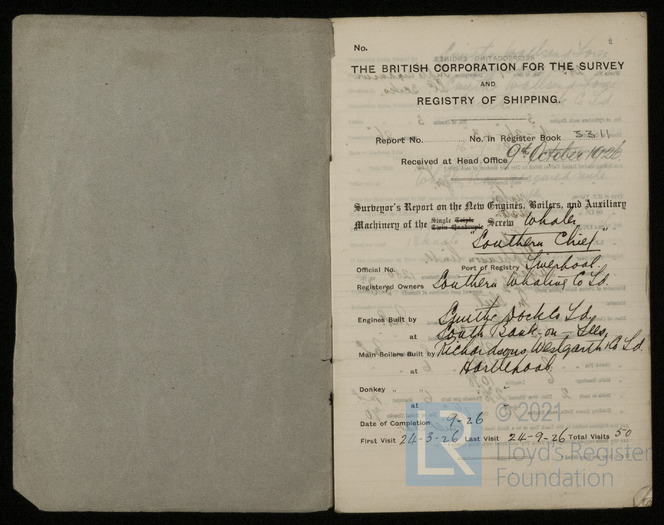 No.
THE BRITISH CORPORATION FOR THE SURVEY
AND
REGISTRY OF SHIPPING.
Report No. No. in Register Book 3311
Received at Head Office 9th October 1926
Surveyor's Report on the New Engines, Boilers, and Auxiliary
Machinery of the Single Triple Twin Quadruple Screw Whaler
"Southern Chief"
Official No. Port of Registry Liverpool.
Registered Owners Southern Whaling Co Ld.
Engines Built by Smith's Docks Ld,
at South Bank-on-Tees,
Main Boilers Built by Richardsons, Westgarth & Co Ld.
at Hartlepool
Donkey " "
at "
Date of Completion 9-26
First Visit 24-3-26 Last Visit 24-9-26 Total Visits 50
© 2021
LR
Lloyd's Register
Foundation